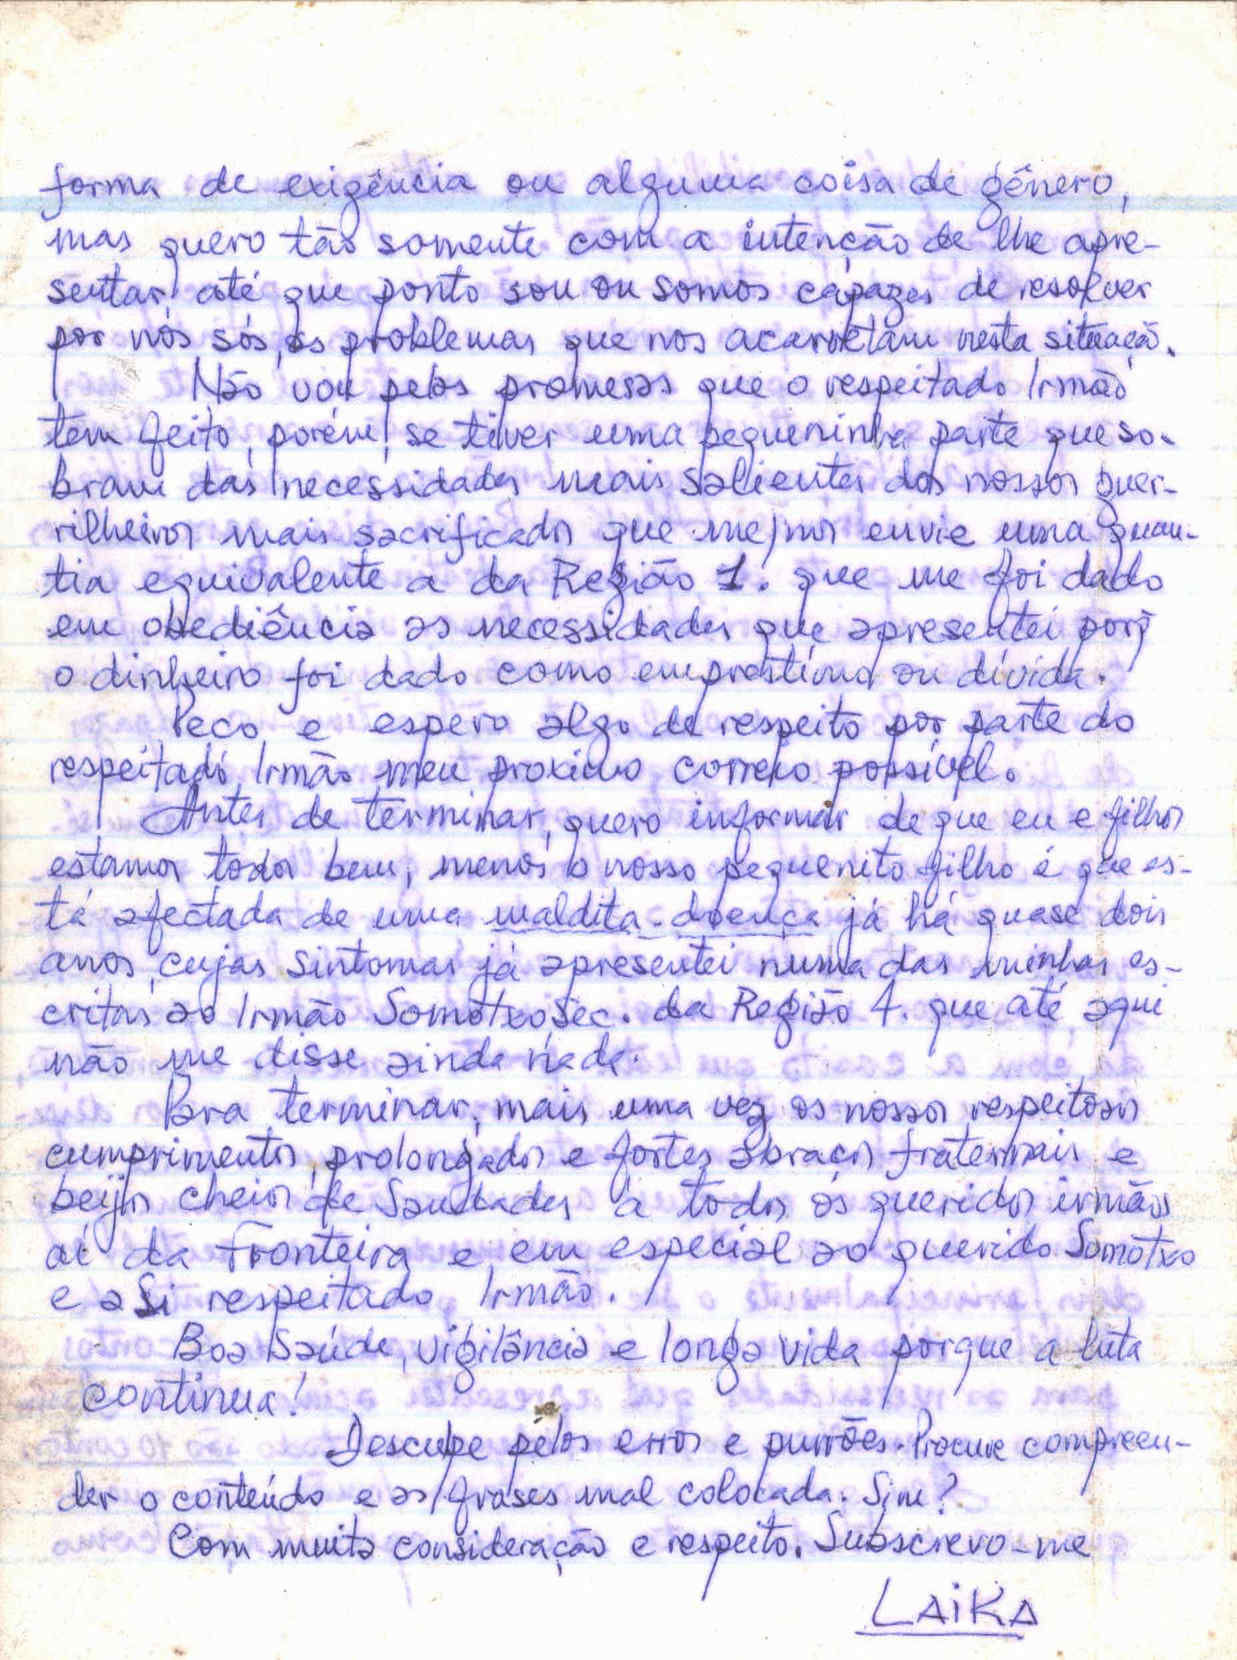 forma de exigência ou alguma coisa de gênero,
mas quero tão somente com a intenção de lhe apre-
sentar até que ponto sou ou somos capazes de resolver
por nós sós, os problemas que nos acarretam nesta situação.
Não vou pelas promessas que o respeitado Irmão
tem feito, porém, se tiver uma pequeninha parte que so-
bram das necessidades mais salientes dos nossos guer-
rilheiros mais sacrificados que me/nos envie uma quan-
tia equivalente a da Região 1. que me foi dado
em obediência as necessidades que apresentei porq̃
o dinheiro foi dado como empréstimo ou dívida.
Peço e espero algo de respeito por parte do
respeitado Irmão meu proximo correio possível.
Antes de terminar, quero informar de que eu e filhos
estamos todos bem, menos o nosso pequenito filho é que es-
tá afectada de uma maldita doença já há quase dois
anos, cujas sintomas já apresentei numa das minhas es-
critas ao Irmão Somotxo Sec. da Região 4. que até aqui
não me disse ainda nada.
Para terminar, mais uma vez os nossos respeitosos
cumprimentos prolongados e fortes abraços fraternais e
beijos cheios de Saudades à todos os queridos irmãos
aí da Fronteira e em especial ao querido Somotxo
e a Si respeitado Irmão.
Boa Saúde, vigilância e longa vida porque a luta
continua!
Desculpe pelos erros e purrões. Procure compreen-
der o conteúdo e as frases mal colocada. Sim?
Com muita consideração e respeito. Subscrevo-me
LAIKA